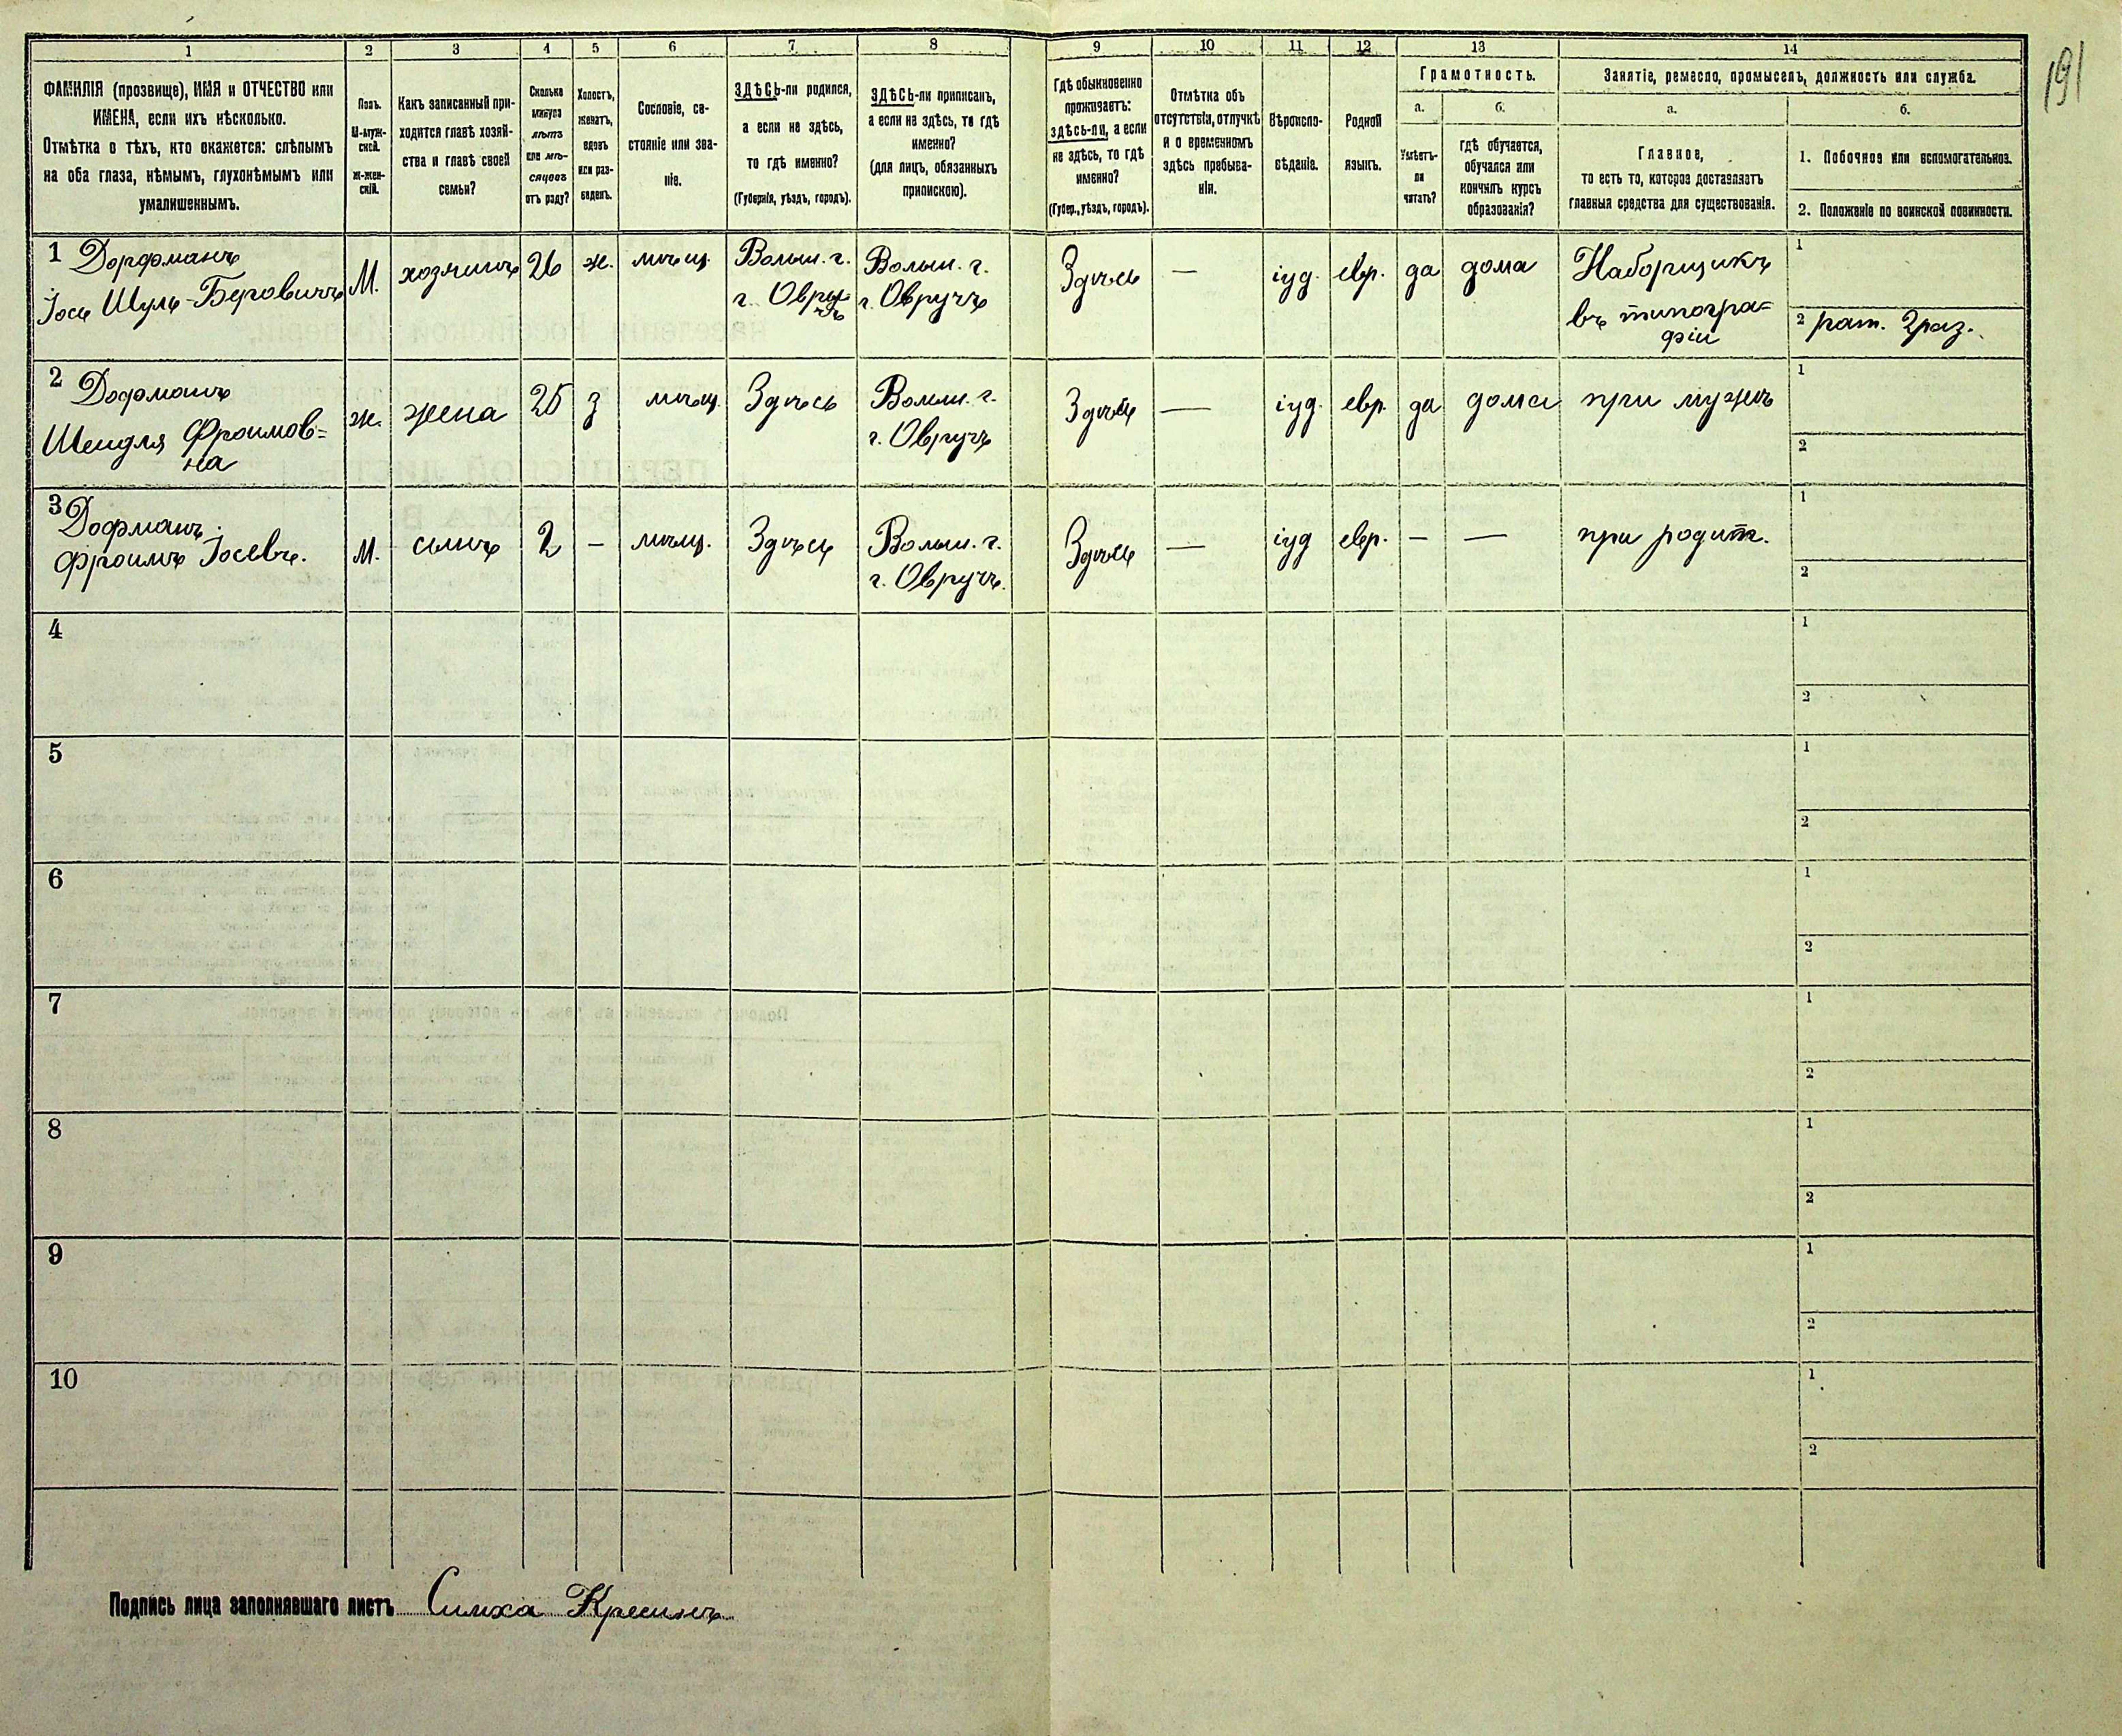 191
1
2
3
4
5
6
7
8
9
10
11
12
13
14
ФАМИЛІЯ (прозвище), ИМЯ и ОТЧЕСТВО или
ИМЕНА, если ихъ нѣсколько.
Отмѣтка о тѣхъ, кто окажется: слѣпымъ
на оба глаза, нѣмымъ, глухонѣмымъ или
умалишеннымъ.
Полъ.
М-муж-
ской.
ж-жен-
скій.
Какъ записанный при-
ходится главѣ хозяй-
ства и главѣ своей
семьи?
Сколько
минуло
лѣтъ
или мѣ-
сяцевъ
отъ роду?
Холостъ,
женатъ,
вдовъ
или раз-
веденъ.
Сословіе, со-
стояніе или зва-
ніе.
ЗДѢСЬ-ли родился,
а если не здѣсь,
то гдѣ именно?
(Губернія, уѣздъ, городъ).
ЗДѢСЬ-ли приписанъ,
а если не здѣсь, то гдѣ
именно?
(для лицъ, обязанныхъ
припискою).
Гдѣ обыкновенно
проживаетъ:
здѣсь-ли, а если
не здѣсь, то гдѣ
именно?
(Губер., уѣздъ, городъ).
Отмѣтка объ
отсутствіи, отлучкѣ
и о временномъ
здѣсь пребыва-
ніи.
Вѣроиспо-
вѣданіе.
Родной
языкъ.
Грамотность.
а.
Умѣетъ-
ли
читать?
б.
гдѣ обучается,
обучался или
кончилъ курсъ
образованія?
Занятіе, ремесло, промыселъ, должность или служба.
а.
Главное,
то есть то, которое доставляетъ
главныя средства для существованія.
б.
1. Побочное или вспомогательное.
2. Положеніе по воинской повинности.
1 Дорфманъ
Іось Шуль-Беровичъ
М.
хозяинъ
26
ж.
мѣщ.
Волын. г.
г. Овру-
чъ
Волын. г.
г. Овручъ
Здѣсь
—
іуд.
евр.
да
дома
Наборщикъ
въ типогра=
фіи
1
2 рат. 2 раз.
2 Дофманъ
Шейдля Фроимов=
на
ж.
жена
25
з
мѣщ.
Здѣсь
Волын. г.
г. Овручъ
Здѣсь
—
іуд.
евр.
да
дома
при мужѣ
1
2
3 Дофманъ
Фроимъ Іосевъ.
М.
сынъ
2
–
мѣщ.
Здѣсь
Волын. г.
г. Овручъ.
Здѣсь
—
іуд
евр.
–
—
при родит.
1
2
4
1
2
5
1
2
6
1
2
7
1
2
8
1
2
9
1
2
10
1
2
Подпись лица заполнявшаго листъ Симха